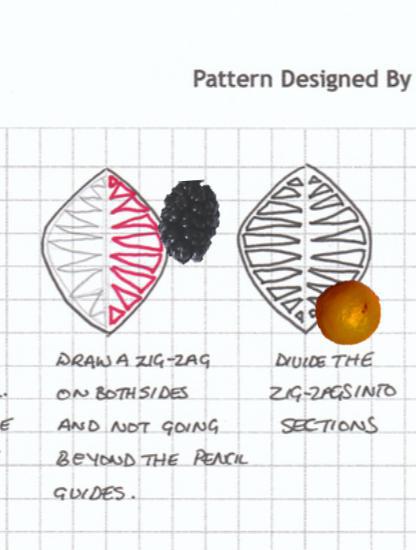 Pattern Designed By
DRAW A ZIG-ZAG
ON BOTH SIDES
AND NOT GOING
BEYOND THE PENCIL
GUIDES.
DIVIDE THE
ZIG-ZAGS INTO
SECTIONS